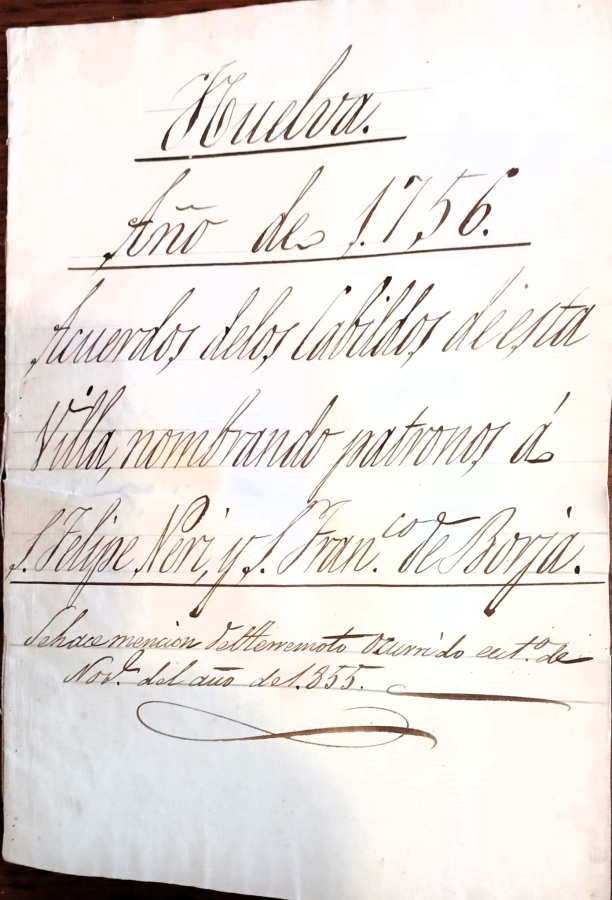 Huelva.
Año de 1.756.
Acuerdos delos Cabildos de esta
Villa, nombrando patronos á
S. Felipe Neri, y S. Fran.co de Borja.
Sehace mencion del terremoto ocurrido en 1.º de
Nov.e del año de 1.355.